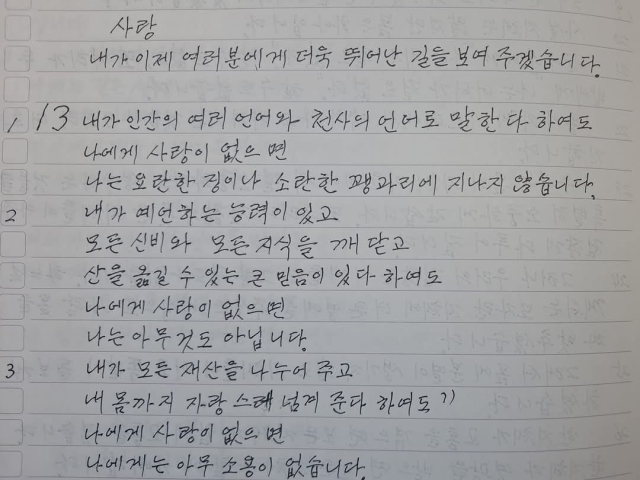 사랑
내가 이제 여러분에게 더욱 뛰어난 길을 보여 주겠습니다.
1 13 내가 인간의 여러 언어와 천사의 언어로 말한다 하여도
나에게 사랑이 없으면
나는 요란한 징이나 소란한 꽹과리에 지나지 않습니다.
2 내가 예언하는 능력이 있고
모든 신비와 모든 지식을 깨닫고
산을 옮길 수 있는 큰 믿음이 있다 하여도
나에게 사랑이 없으면
나는 아무것도 아닙니다.
3 내가 모든 재산을 나누어 주고
내 몸까지 자랑스레 넘겨 준다 하여도 1)
나에게 사랑이 없으면
나에게는 아무 소용이 없습니다.